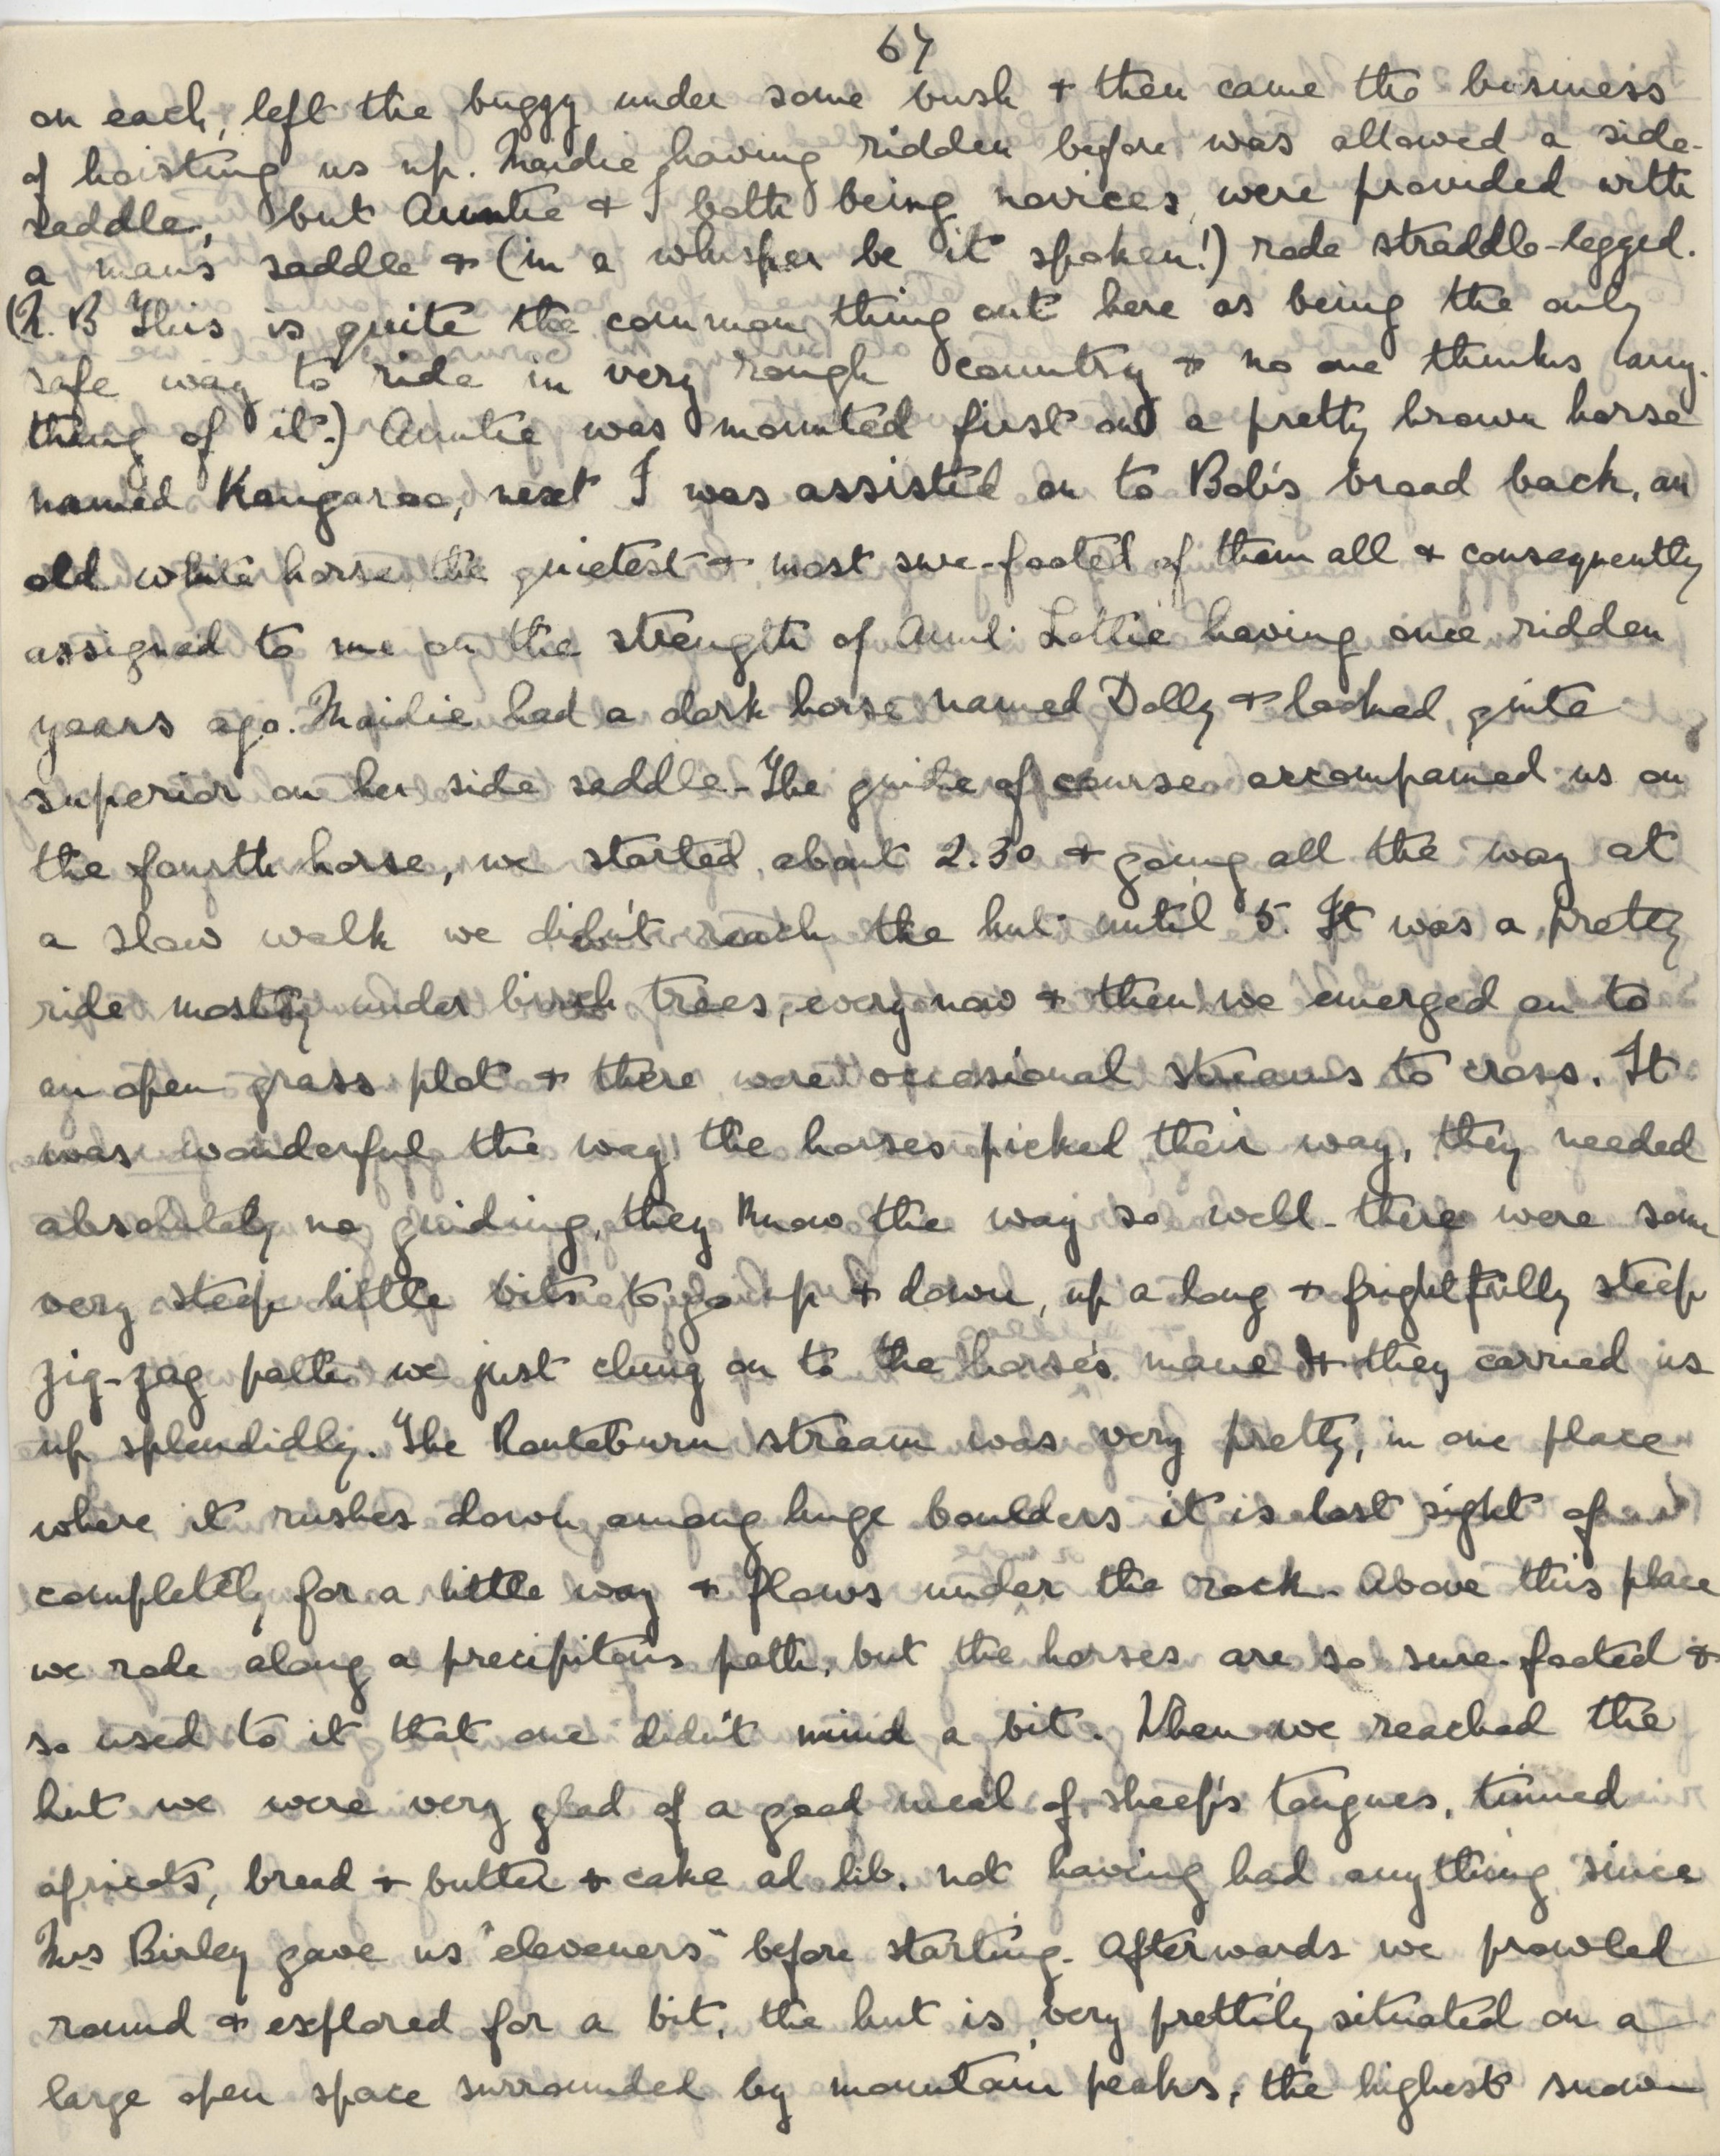 67
on each, left the buggy under some bush + then came the business
of hoisting us up. Maidie having ridden before was allowed a side-
saddle, but Auntie + I both being novices, were provided with
a man's saddle + (in a whisper be it spoken!) rode straddle-legged.
(N.B This is quite the common thing out here as being the only
safe way to ride in very rough country + no one thinks any-
thing of it.) Auntie was mounted first on a pretty brown horse
named Kangaroo, next I was assisted on to Bob's broad back, an
old white horse the quietest + most sure-footed of them all + consequently
assigned to me on the strength of Aunt Lottie having once ridden
years ago. Maidie had a dark horse named Dolly + looked quite
superior on her side saddle - The guide of course accompanied us on
the fourth horse, we started about 2.30 + going all the way at
a slow walk we didn't reach the hut until 5. It was a pretty
ride mostly under birch trees, every now + then we emerged on to
an open grass plot + there were occasional streams to cross. It
was wonderful the way the horses picked their way, they needed
absolutely no guiding, they know the way so well - there were some
very steep little bits to go up + down, up a long + frightfully steep
zig-zag path we just clung on to the horse's mane + they carried us
up splendidly. The Routeburn stream was very pretty, in one place
where it rushes down among huge boulders it is lost sight of
completely for a little way + flows under the rock. Above this place
we rode along a precipitous path, but the horses are so sure-footed +
so used to it that one didn't mind a bit. When we reached the
hut we were very glad of a good meal of sheep's tongues, tinned
apricots, bread + butter + cake ad lib, not having had anything since
Mrs Birley gave us "eleveners" before starting. Afterwards we prowled
round + explored for a bit, the hut is very prettily situated on a
large open space surrounded by mountain peaks, the highest snow-